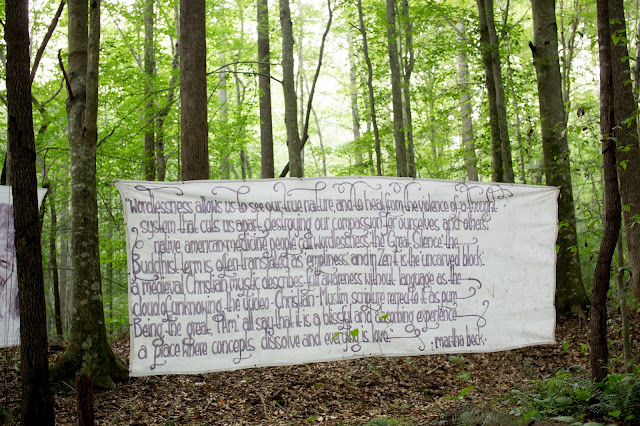 "wordlessness allows us to see our true nature, and to heal from the violence of a thought
system that cuts us apart, destroying our compassion for ourselves and others.
native american medicine people call wordlessness 'the Great Silence'. the
Buddhist term is often translated as emptiness, and in Zen it is the uncarved block.
a medieval Christian mystic describes full awareness without language as the
cloud of unknowing. the Judeo-Christian-Muslim scripture refered to it as pure
Being, the great "I Am". all say that it is a blissful and absorbing experience
a place where concepts dissolve and everything is love."
-martha beck-